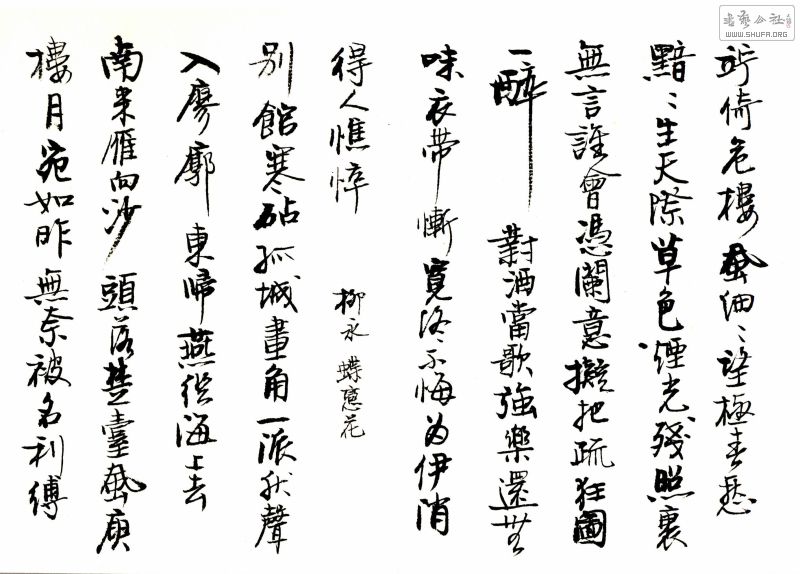 竚倚危樓風細〻望極春愁
黯〻生天際草色煙光殘照裏
無言誰會憑闌意擬把疏狂圖
一醉 對酒當歌強樂還無
味衣帶漸寬終不悔為伊消
得人憔悴 柳永 蝶戀花
別館寒砧孤城畫角一派秋聲
入廖廓東歸燕從海上去
南來雁向沙頭落楚臺風庾
樓月宛如昨無奈被名利縛
書藝公社
WWW.SHUFA.ORG